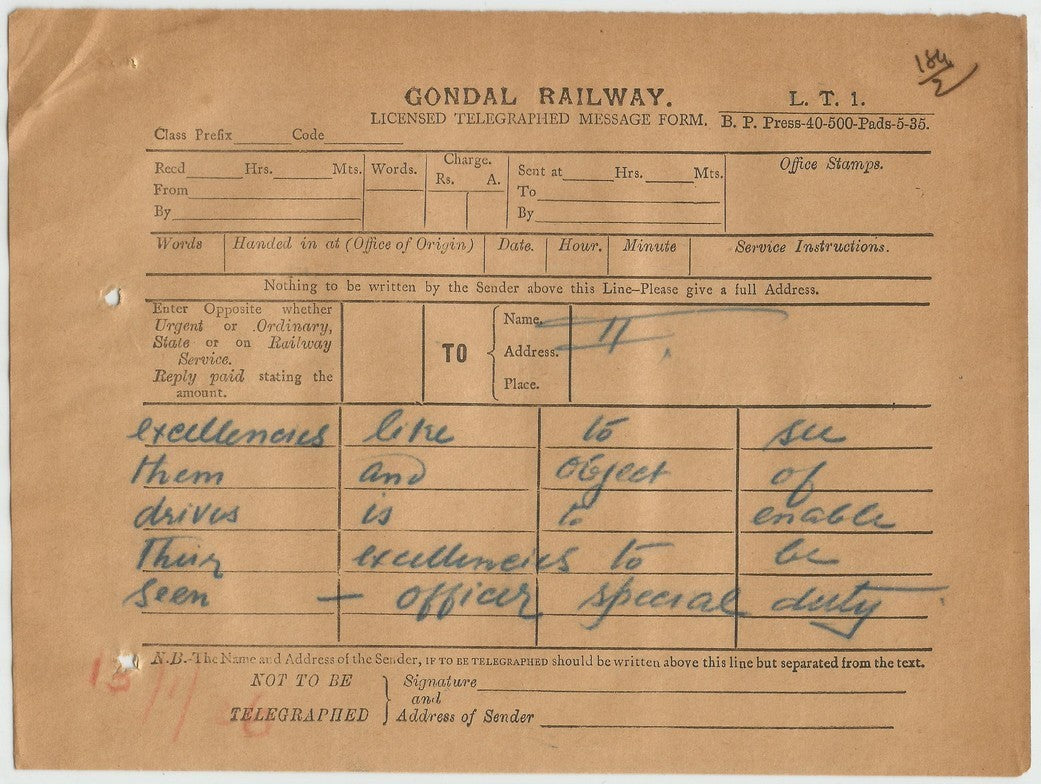 184/2
GONDAL RAILWAY. L. T. 1.
LICENSED TELEGRAPHED MESSAGE FORM. B. P. Press-40-500-Pads-5-35.
Class Prefix Code
Recd Hrs. Mts. Words. Charge. Sent at Hrs. Mts. Office Stamps.
Rs. A.
From To
By By
Words Handed in at (Office of Origin) Date. Hour. Minute Service Instructions.
Nothing to be written by the Sender above this Line-Please give a full Address.
Enter Opposite whether
Urgent or Ordinary,
State or on Railway
Service.
Reply paid stating the
amount.
TO
Name.
Address.
Place.
II
excellencies like to see
them and object of
drives is to enable
Their excellencies to be
seen — officer special duty
N.B.-The Name and Address of the Sender, IF TO BE TELEGRAPHED should be written above this line but separated from the text.
NOT TO BE
TELEGRAPHED
Signature
and
Address of Sender